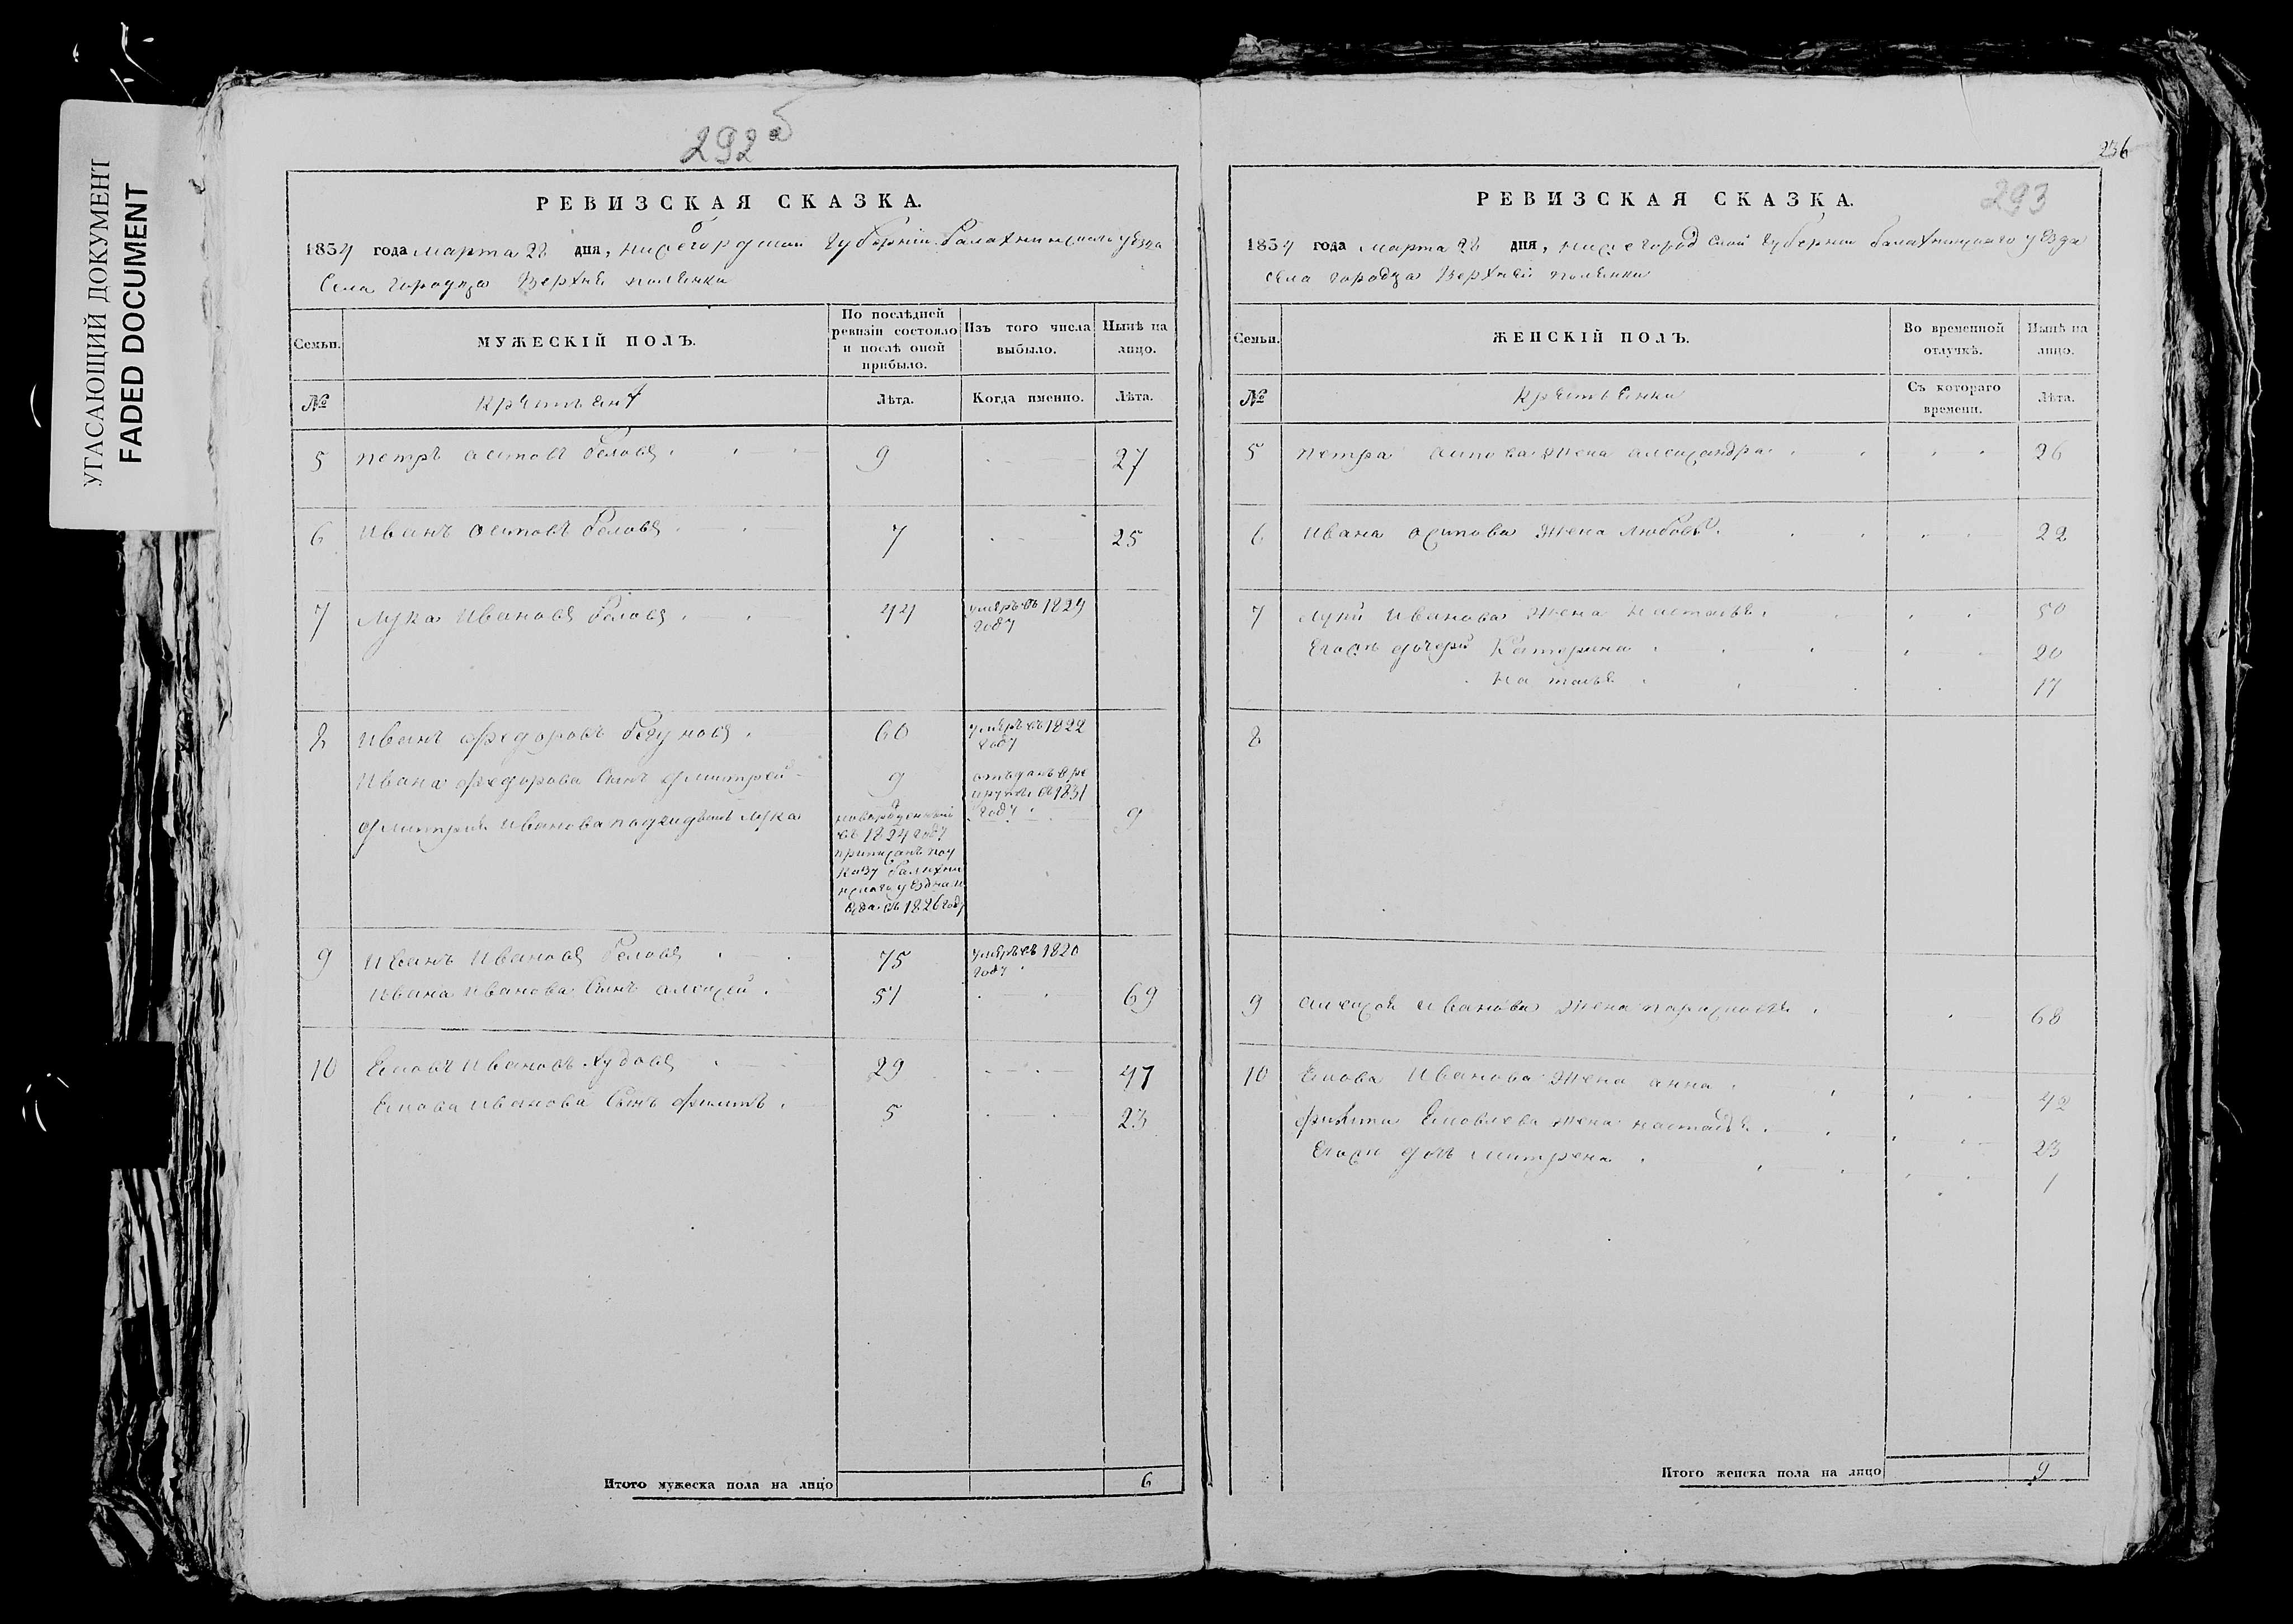 УГАСАЮЩИЙ ДОКУМЕНТ
FADED DOCUMENT
292б
РЕВИЗСКАЯ СКАЗКА.
1834 года марта 28 дня, нижегородской губернии балахнинскаго уезда
Села городца Верхней полянки
Семьи.
МУЖЕСКІЙ ПОЛЪ.
По послѣдней ревизіи состояло и послѣ оной прибыло.
Изъ того числа выбыло.
Нынѣ на лицо.
№
Крестьянѣ
Лѣта.
Когда именно.
Лѣта.
5 петръ осиповъ беловъ 9 27
6 иванъ осиповъ беловъ 7 25
7 лука ивановъ беловъ 44 умеръ въ 1829
году
8 иванъ федоровъ 60 умеръ въ 1822
году
ивана федорова сынъ дмитрей 9 отъданъ в ре
круты въ 1831
году
дмитрия иванова подкидышъ лука 9
новорожденный
въ 1824 году
приписанъ по у
казу балахни
нскаго уезднаго
суда въ 1826 году
9 иванъ ивановъ беловъ 75 умеръ въ 1820
году
ивана иванова сынъ алексей 51 69
10 Ековъ ивановъ худовъ 29 47
Екова иванова сынъ филипъ 5 23
Итого мужеска пола на лицо 6
236
293
РЕВИЗСКАЯ СКАЗКА.
1834 года марта 28 дня, нижегородской губернии балахнинскаго уезда
села городца Верхней полянки
Семьи.
ЖЕНСКІЙ ПОЛЪ.
Во временной отлучкѣ.
Нынѣ на лицо.
№
Крестьянки
Съ котораго времени.
Лѣта.
5 петра осипова жена александра 26
6 ивана осипова жена любовь 22
7 луки иванова жена настасья 50
Егожъ дочери Катерина 20
наталья 17
8
9 алексея иванова жена 68
10 Екова иванова жена анна 42
филипа Ековлева жена настасья 23
Егожъ дочь матрена 1
Итого женска пола на лицо 9